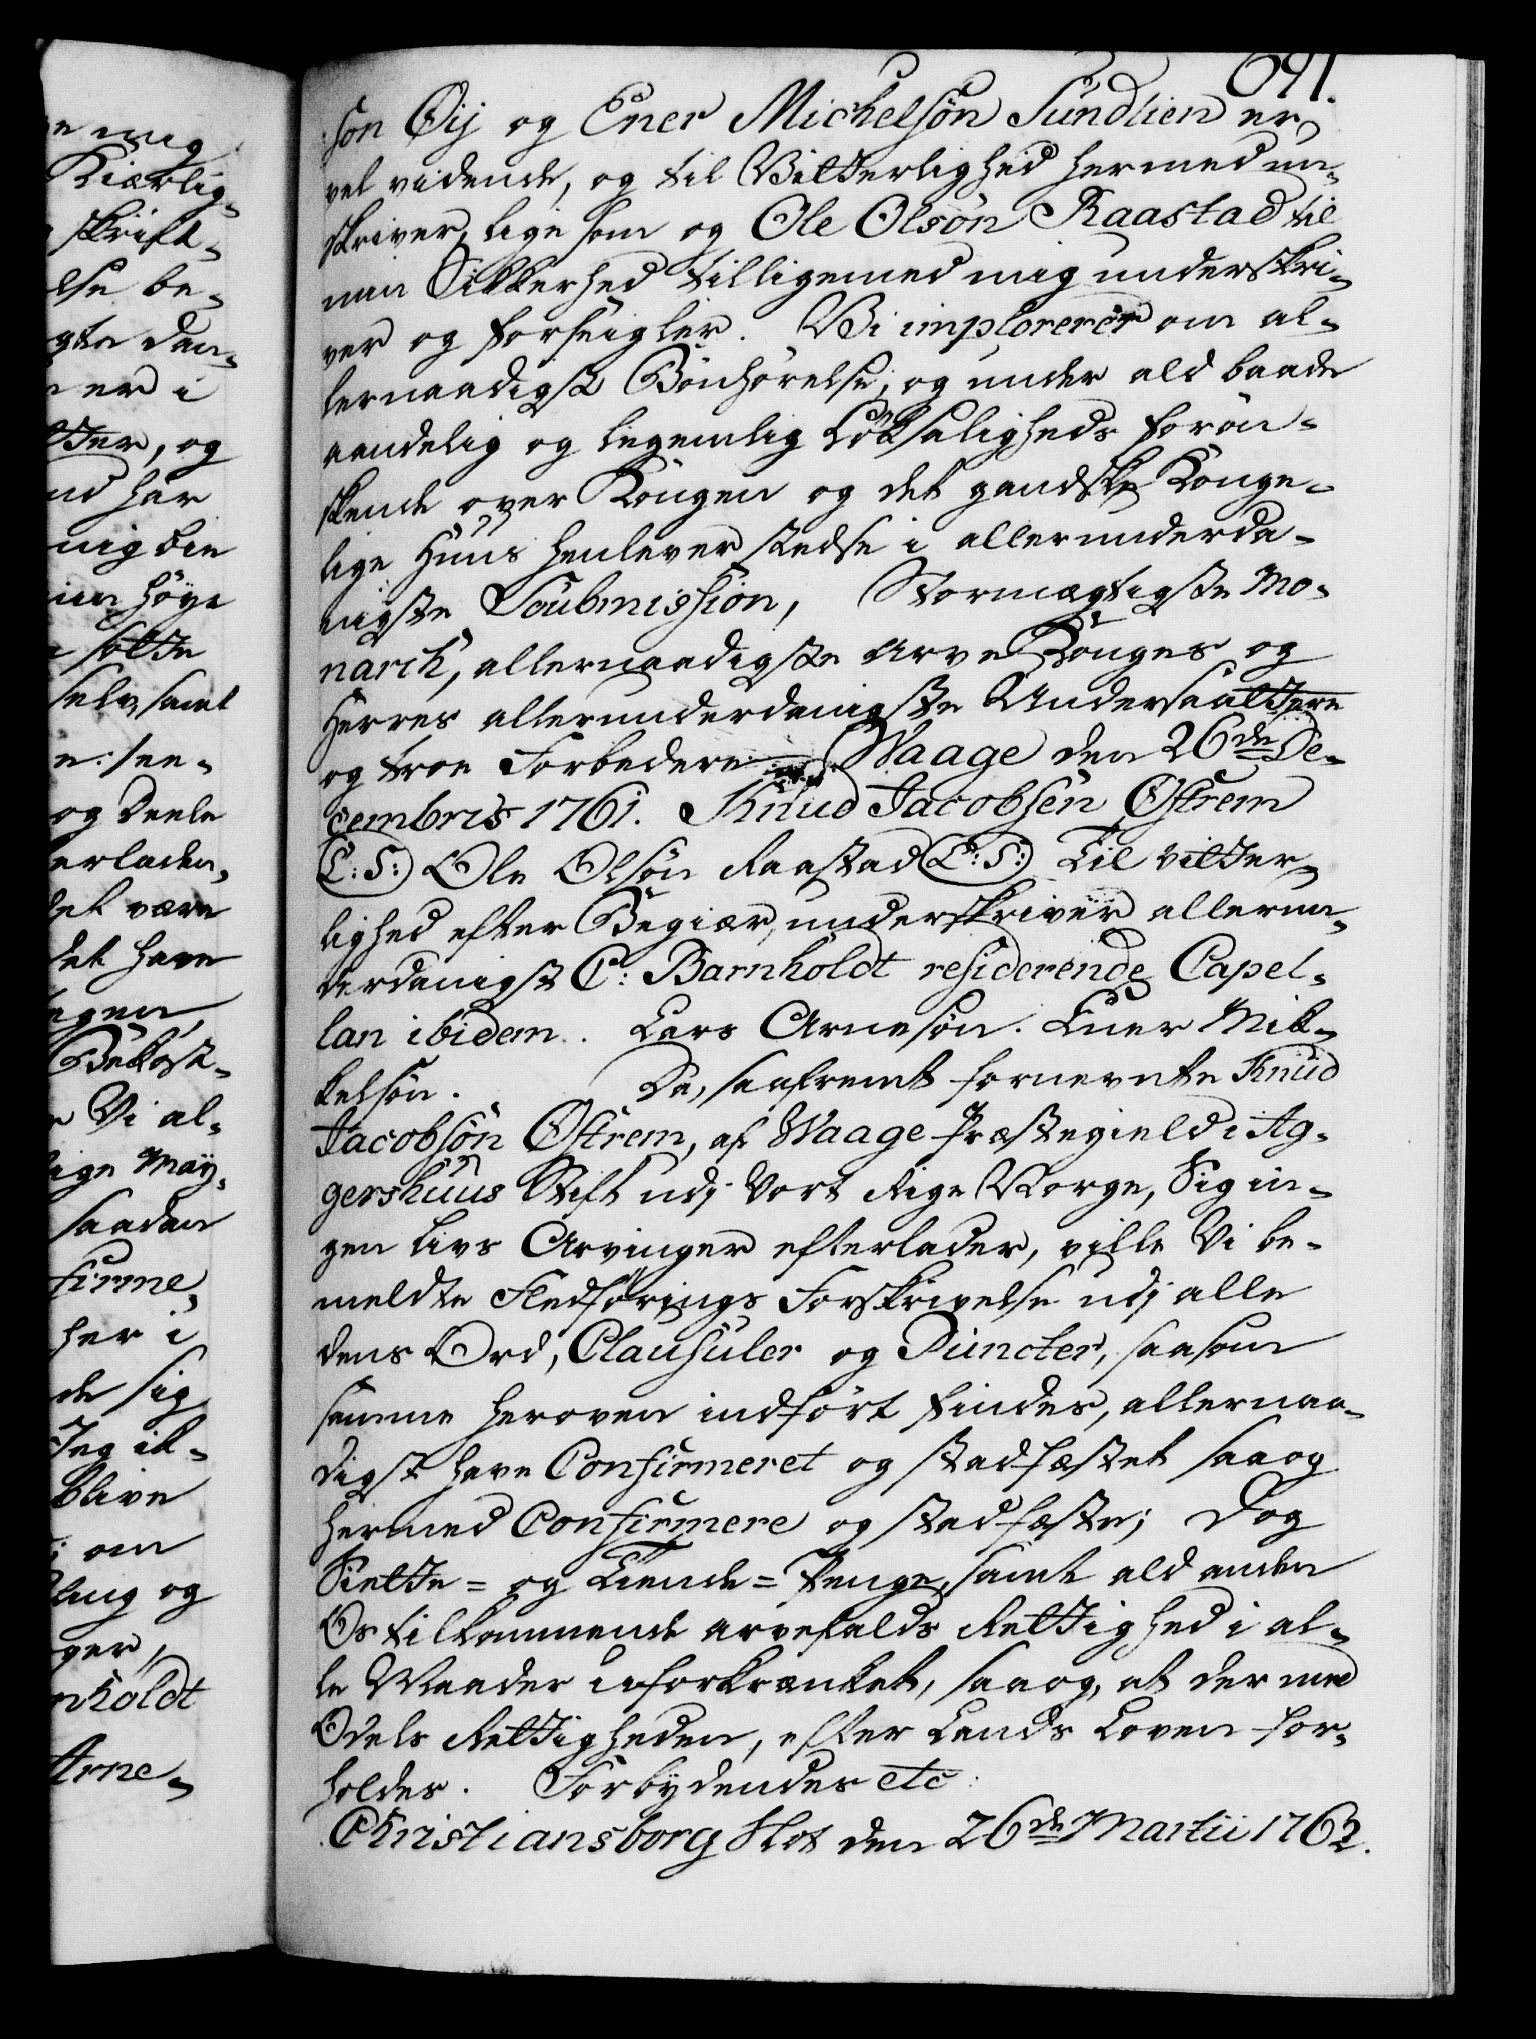 691.
søn Øij og Ener Michelsøn Sundlien er
vel vidende, og til Vitterlighed hermed un-
skriver, lige som og Ole Olsøn Raastad til
min Sikkerhed tilligemed mig underskri-
ver og forseigler. Vi implorerer om al-
lernaadigst Bønhørelse, og under ald baade
aandelig og legemlig Løksaligheds forøn-
skende over Kongen og det gandske Konge-
lige Huus henlever stedse i allerunderda-
nigste Soubmission, Stormægtigste Mo-
narch, allernaadigste Arve Konges og
Herres allerunderdanigste Undersaattere
og troe Forbedere Waage den 26de De-
cembris 1761. Knud Jacobsen Øfrem
(L:S:) Ole Olsøn Raastad (L:S:) Til vitter-
lighed efter Begiær, underskriver allerun-
derdanigst C: Barnholdt residerende Capel-
lan ibidem. Lars Arnesøn. Ener Mik-
kelsøn. Da, saafremt fornevnte Knud
Jacobsøn Øfrem, af Waage Præstegield i Ag-
gershuus Stift udj Vort Rige Norge, Sig in-
gen Livs Arvinger efterlader, ville Vi be-
meldte Fledførings Forskrivelse udj alle
dens Ord, Clausuler og Puncter, saasom
samme heroven indført findes, allernaa-
digst have Confirmeret og stadfæstet saa og
hermed Confirmere og stadfæste; Dog
Siette = og Tiende = Penge, samt ald anden
Os tilkommende arvefalds Rettighed i al-
le Maader uforkrænket, saa og, at der med
Odels Rettigheden, efter Lands Loven for-
holdes. Forbydendes etc:
Christiansborg Slot den 26de Martii 1762.